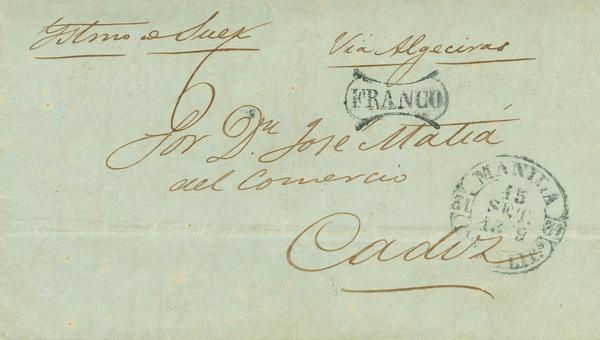 Istmo de Suez Via Algeciras
FRANCO
Sor Dn José Matiá
del Comercio
MANILA
15
SET.
Cadiz